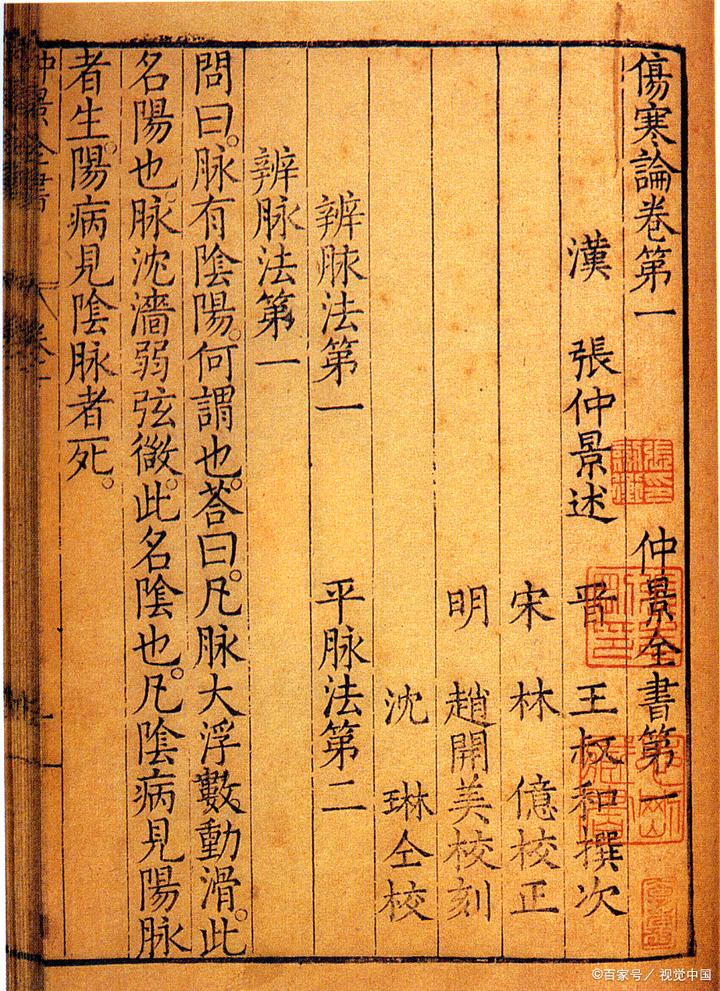 傷寒論卷第一 仲景全書第一
漢 張仲景述 晉 王叔和撰次
宋 林 億校正
明 趙開美校刻
沈 琳仝校
辨脉法第一 平脉法第二
辨脉法第一
問曰。脉有陰陽。何謂也。荅曰。凡脉大浮數動滑。此
名陽也。脉沈濇弱弦微。此名陰也。凡陰病見陽脉
者生。陽病見陰脉者死。
仲景全書
卷一
©百家号／视觉中国